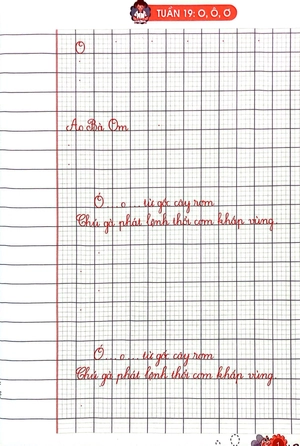 TUẦN 19: O, Ô, Ơ
O
Ao Bà Om
Ó...o... từ gốc cây rơm
Chú gà phát lệnh thổi cơm khắp vùng.
Ó...o... từ gốc cây rơm
Chú gà phát lệnh thổi cơm khắp vùng.